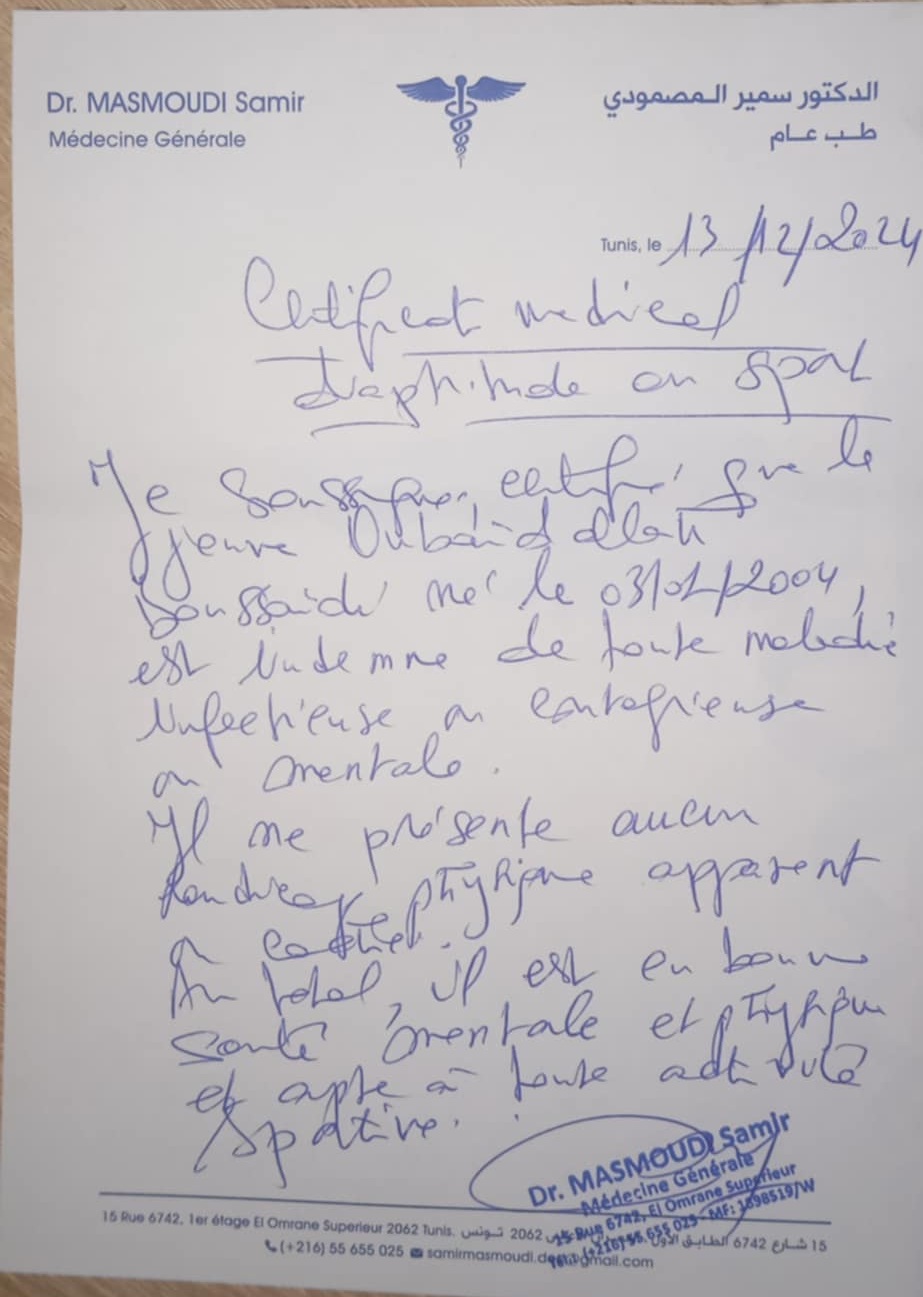 Dr. MASMOUDI Samir
Médecine Générale
الدكتور سمير المصمودي
طب عام
Tunis, le 13/12/2024
Certificat medical
d'aptitude au sport
Je soussigné certifie que le
jeune Oubaid allah
boussaidi né le 2004,
est indemne de toute maladie
infectieuse ou contagieuse
ou mentale.
Il ne présente aucun
handicap physique apparent
ou caché.
Au total, il est en bonne
santé mentale et physique
et apte à toute activité
sportive.
Dr. MASMOUDI Samir
Médecine Générale
15 Rue 6742, El Omrane Superieur
(+216) 55 655 025 - MF: 1698519/W
15 Rue 6742, 1er étage El Omrane Superieur 2062 Tunis. 15 شارع 6742 الطابق الأول 2062 تونس
(+216) 55 655 025 samirmasmoudi.@gmail.com